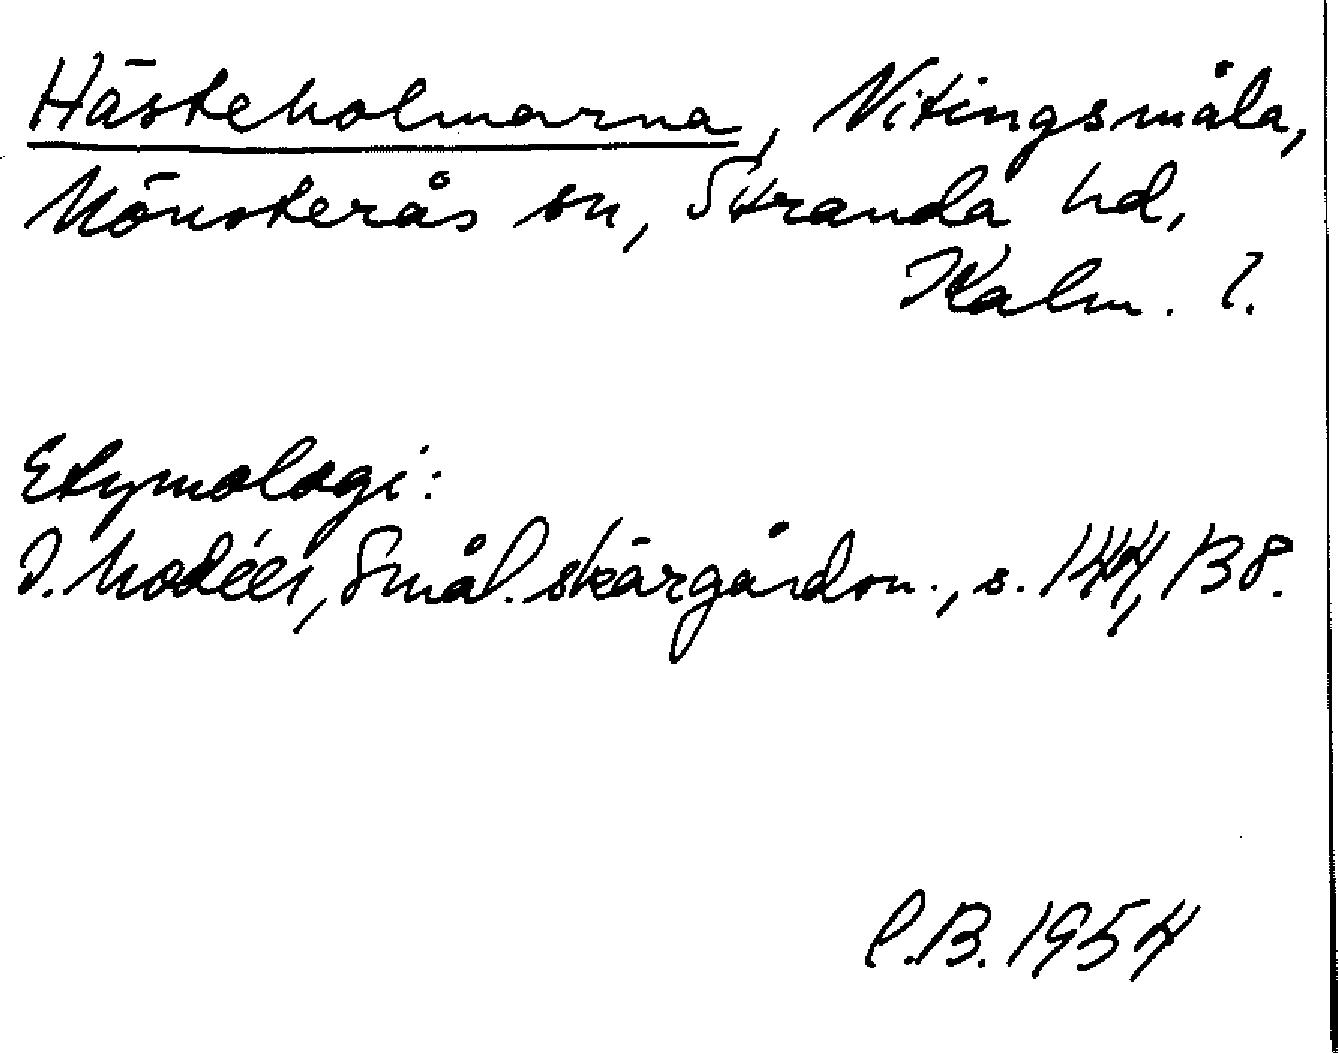 Hästeholmarna, Vitingsmåla,
Mönsterås sn, Stranda hd,
Kalm. l.
Etymologi:
I. Modéer, Smål. skärgårdsn., s. 144, 138.
C.B. 1954